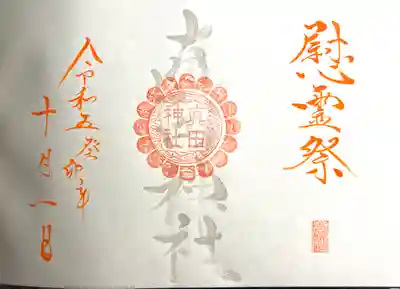 慰霊祭
神社
田
神社
令和五癸卯年
十月一日